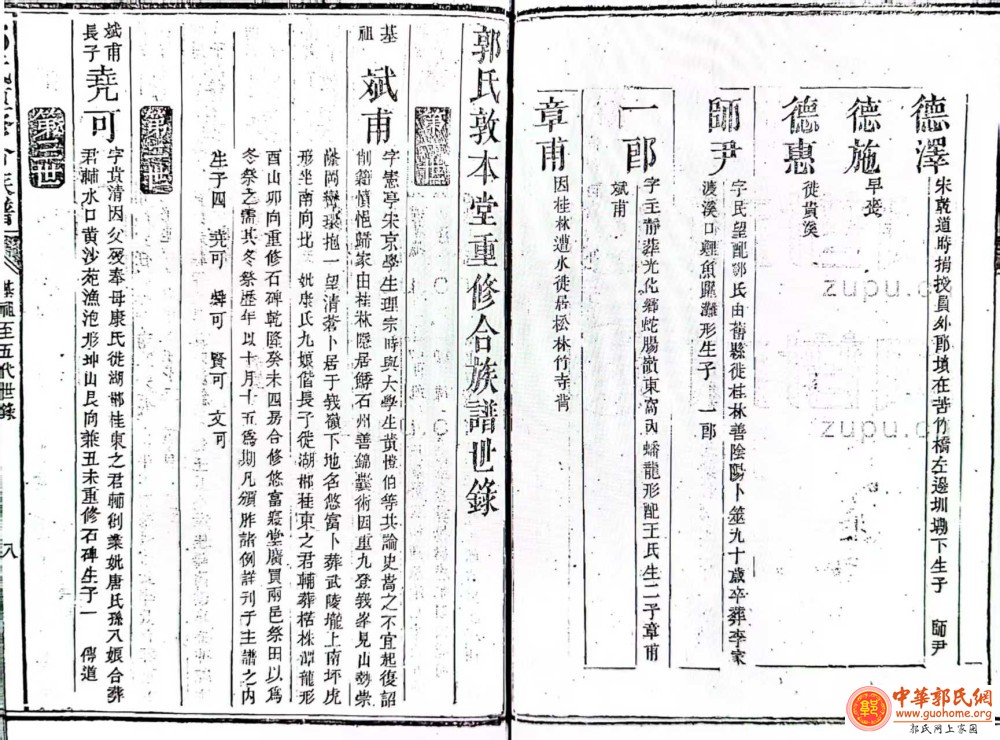 德澤 宋乾道時捐授員外郎墳在苦竹橋左邊圳墈下生子 師尹
德施 早喪
德惠 徙貴溪
師尹 字民望配鄧氏由舊縣徙桂林善陰陽卜筮九十歲卒葬李家
渡溪口鯉魚
灘形生子 一郎
一郎 字主靜葬光化鄉蛇腸嶺東窩內蟠龍形配王氏生二子章甫
斌甫
章甫 因桂林遭水徙居松林竹寺背
郭氏敦本堂重修合族譜世錄
基祖 斌甫 字憲亭宋京學生理宗時與大學生黃愷伯等共論史嵩之不宜起復詔
削籍憤悒歸家由桂林隱居
石州善錦囊術因重九登
峯見山勢崇
隆岡巒環抱一望清蒼卜居于
嶺下地名悠富卜葬武陵壠上南坪虎
形坐南向北 妣康氏九娘偕長子徙湖郴桂東之君輔葬楛株潭龍形
酉山卯向重修石碑乾隆癸未四房合修悠富寢堂廣買兩邑祭田以為
冬祭之需其冬祭歷年以十月十五為期凡頒胙諸例詳刊于主譜之內
生子四 堯可 舜可 賢可 文可
第二世
斌甫長子 堯可 字貴清因父歿奉母康氏徙湖郴桂東之君輔創業妣唐氏孫八娘合葬
君輔水口黄沙苑漁泡形坤山艮向兼丑未重修石碑生子一 傳道
第三世
基祖至五代世錄
八
zupu.c
zupu.c
中華郭氏網
www.guohome.org
郭氏网上家园